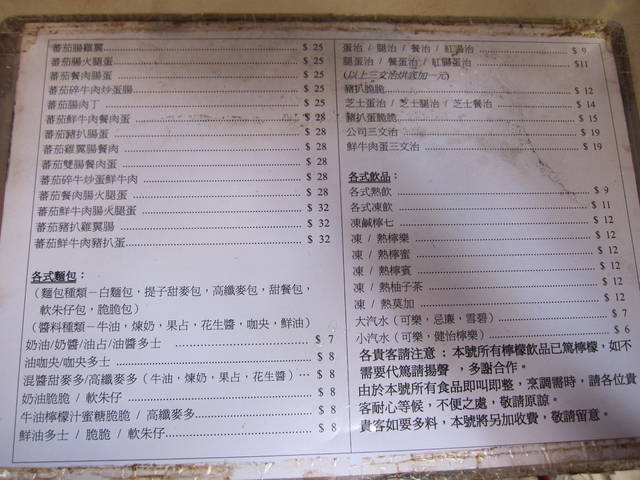 蕃茄腸雞翼 $ 25
蕃茄腸火腿蛋 $ 25
蕃茄餐肉腸蛋 $ 25
蕃茄碎牛肉炒蛋腸 $ 25
蕃茄腸肉丁 $ 25
蕃茄鮮牛肉餐肉蛋 $ 28
蕃茄豬扒腸蛋 $ 28
蕃茄雞翼腸餐肉 $ 28
蕃茄雙腸餐肉蛋 $ 28
蕃茄碎牛炒蛋鮮牛肉 $ 28
蕃茄餐肉腸火腿蛋 $ 28
蕃茄鮮牛肉腸火腿蛋 $ 32
蕃茄豬扒雞翼腸 $ 32
蕃茄鮮牛肉豬扒蛋 $ 32
各式麵包：
（麵包種類－白麵包，提子甜麥包，高纖麥包，甜餐包，
軟朱仔包，脆脆包）
（醬料種類－牛油，煉奶，果占，花生醬，咖央，鮮油）
奶油/奶醬/油占/油醬多士 $ 7
油咖央/咖央多士 $ 8
混醬甜麥多/高纖麥多（牛油，煉奶，果占，花生醬） $ 8
奶油脆脆 / 軟朱仔 $ 8
牛油檸檬汁蜜糖脆脆 / 高纖麥多 $ 8
鮮油多士 / 脆脆 / 軟朱仔 $ 8
蛋治 / 腿治 / 餐治 / 紅腸治 $ 9
腿蛋治 / 餐蛋治 / 紅腸蛋治 $11
(以上三文治烘底加一元)
豬扒脆脆 $ 12
芝士蛋治 / 芝士腿治 / 芝士餐治 $ 14
豬扒蛋脆脆 $ 15
公司三文治 $ 19
鮮牛肉蛋三文治 $ 19
各式飲品：
各式熱飲 $ 9
各式凍飲 $ 11
凍鹹檸七 $ 12
凍 / 熱檸樂 $ 12
凍 / 熱檸蜜 $ 12
凍 / 熱檸賓 $ 12
凍 / 熱柚子茶 $ 12
凍 / 熱美加 $ 12
大汽水（可樂，忌廉，雪碧） $ 7
小汽水（可樂，健怡檸樂） $ 6
各貴客請注意：本號所有檸檬飲品已篤檸檬，如不
需要代篤請揚聲 ，多謝合作。
由於本號所有食品即叫即整，烹調需時，請各位貴
客耐心等候，不便之處，敬請原諒。
貴客如要多料，本號將另加收費，敬請留意。